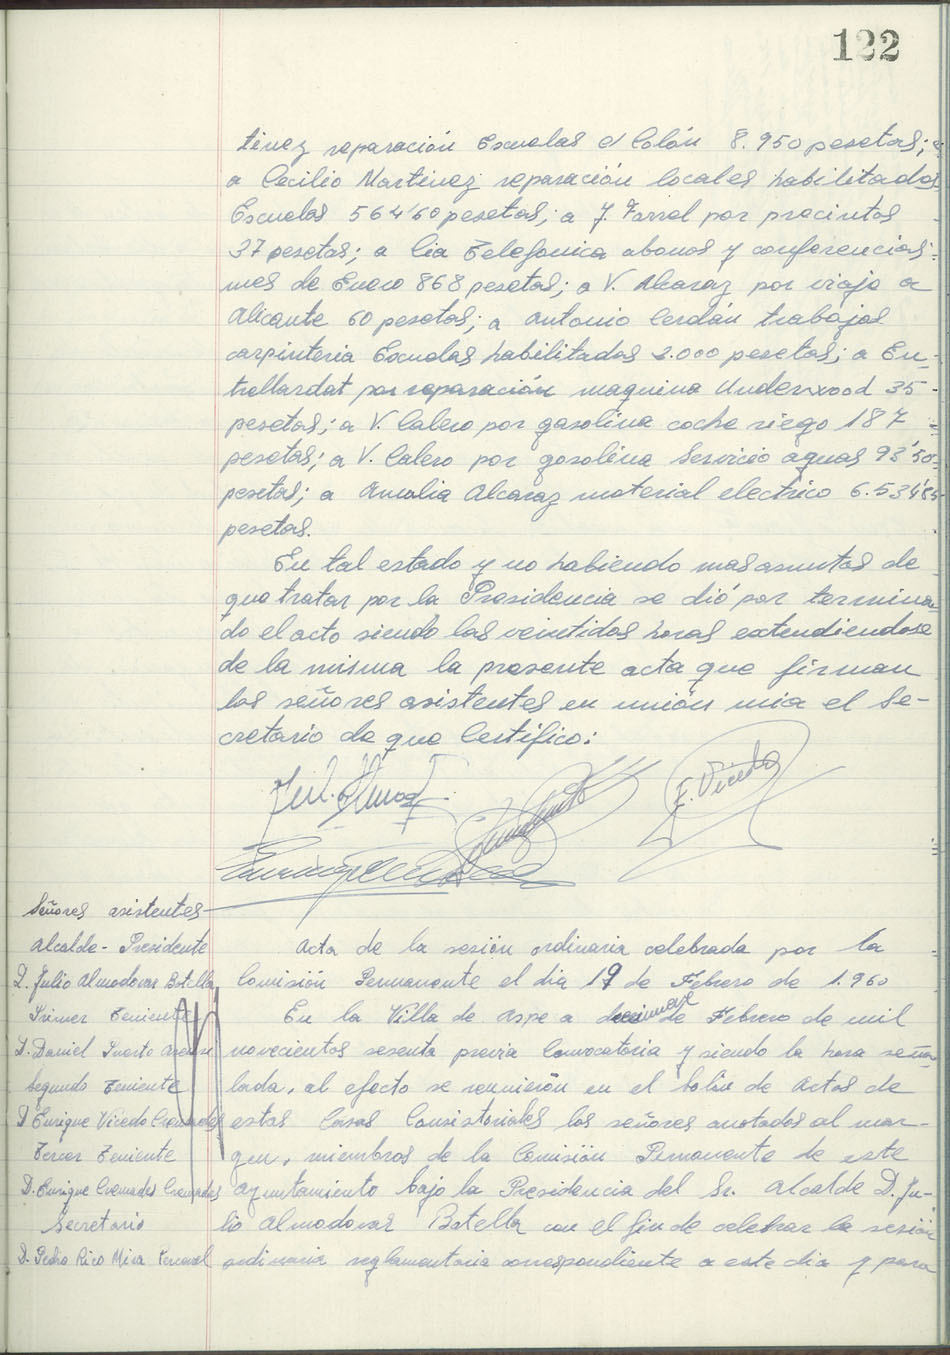 122
tinez reparación Escuelas c/ Colón 8.950 pesetas;
a Cecilio Martinez reparación locales habilitados
Escuelas 564'60 pesetas; a J. Farrel por precintos
37 pesetas; a Cia Telefonica abonos y conferencias
mes de Enero 868 pesetas; a V. Alcaraz por viaje a
Alicante 60 pesetas; a Antonio Cerdán trabajos
carpinteria Escuelas habilitadas 2.000 pesetas; a En-
trellardat por reparación maquina Underwood 35
pesetas; a V. Calero por gasolina coche riego 187
pesetas; a V. Calero por gasolina Servicio aguas 93'50
pesetas; a Amalia Alcaraz material electrico 6.534'85
pesetas.
En tal estado y no habiendo mas asuntos de
que tratar por la Presidencia se dió por termina-
do el acto siendo las veintidos horas extendiendose
de la misma la presente acta que firman
los señores asistentes en unión mia el Se-
cretario de que Certifico:
E. Vicedo
Señores asistentes
Alcalde-Presidente
D. Julio Almodovar Botella
Primer Teniente
D. Daniel Puerto
Segundo Teniente
D Enrique Vicedo Cremades
Tercer Teniente
D. Enrique Cremades Cremades
Secretario
D. Pedro Rico Mira
Acta de la sesión ordinaria celebrada por la
Comisión Permanente el dia 19 de Febrero de 1.960
En la Villa de Aspe a diecinueve de Febrero de mil
novecientos sesenta previa Convocatoria y siendo la hora seña-
lada, al efecto se reunieron en el Salón de Actos de
estas Casas Consistoriales los señores anotados al mar-
gen, miembros de la Comisión Permanente de este
Ayuntamiento bajo la Presidencia del Sr. Alcalde D. Ju-
lio Almodovar Botella con el fin de celebrar la sesión
ordinaria reglamentaria correspondiente a este dia y para